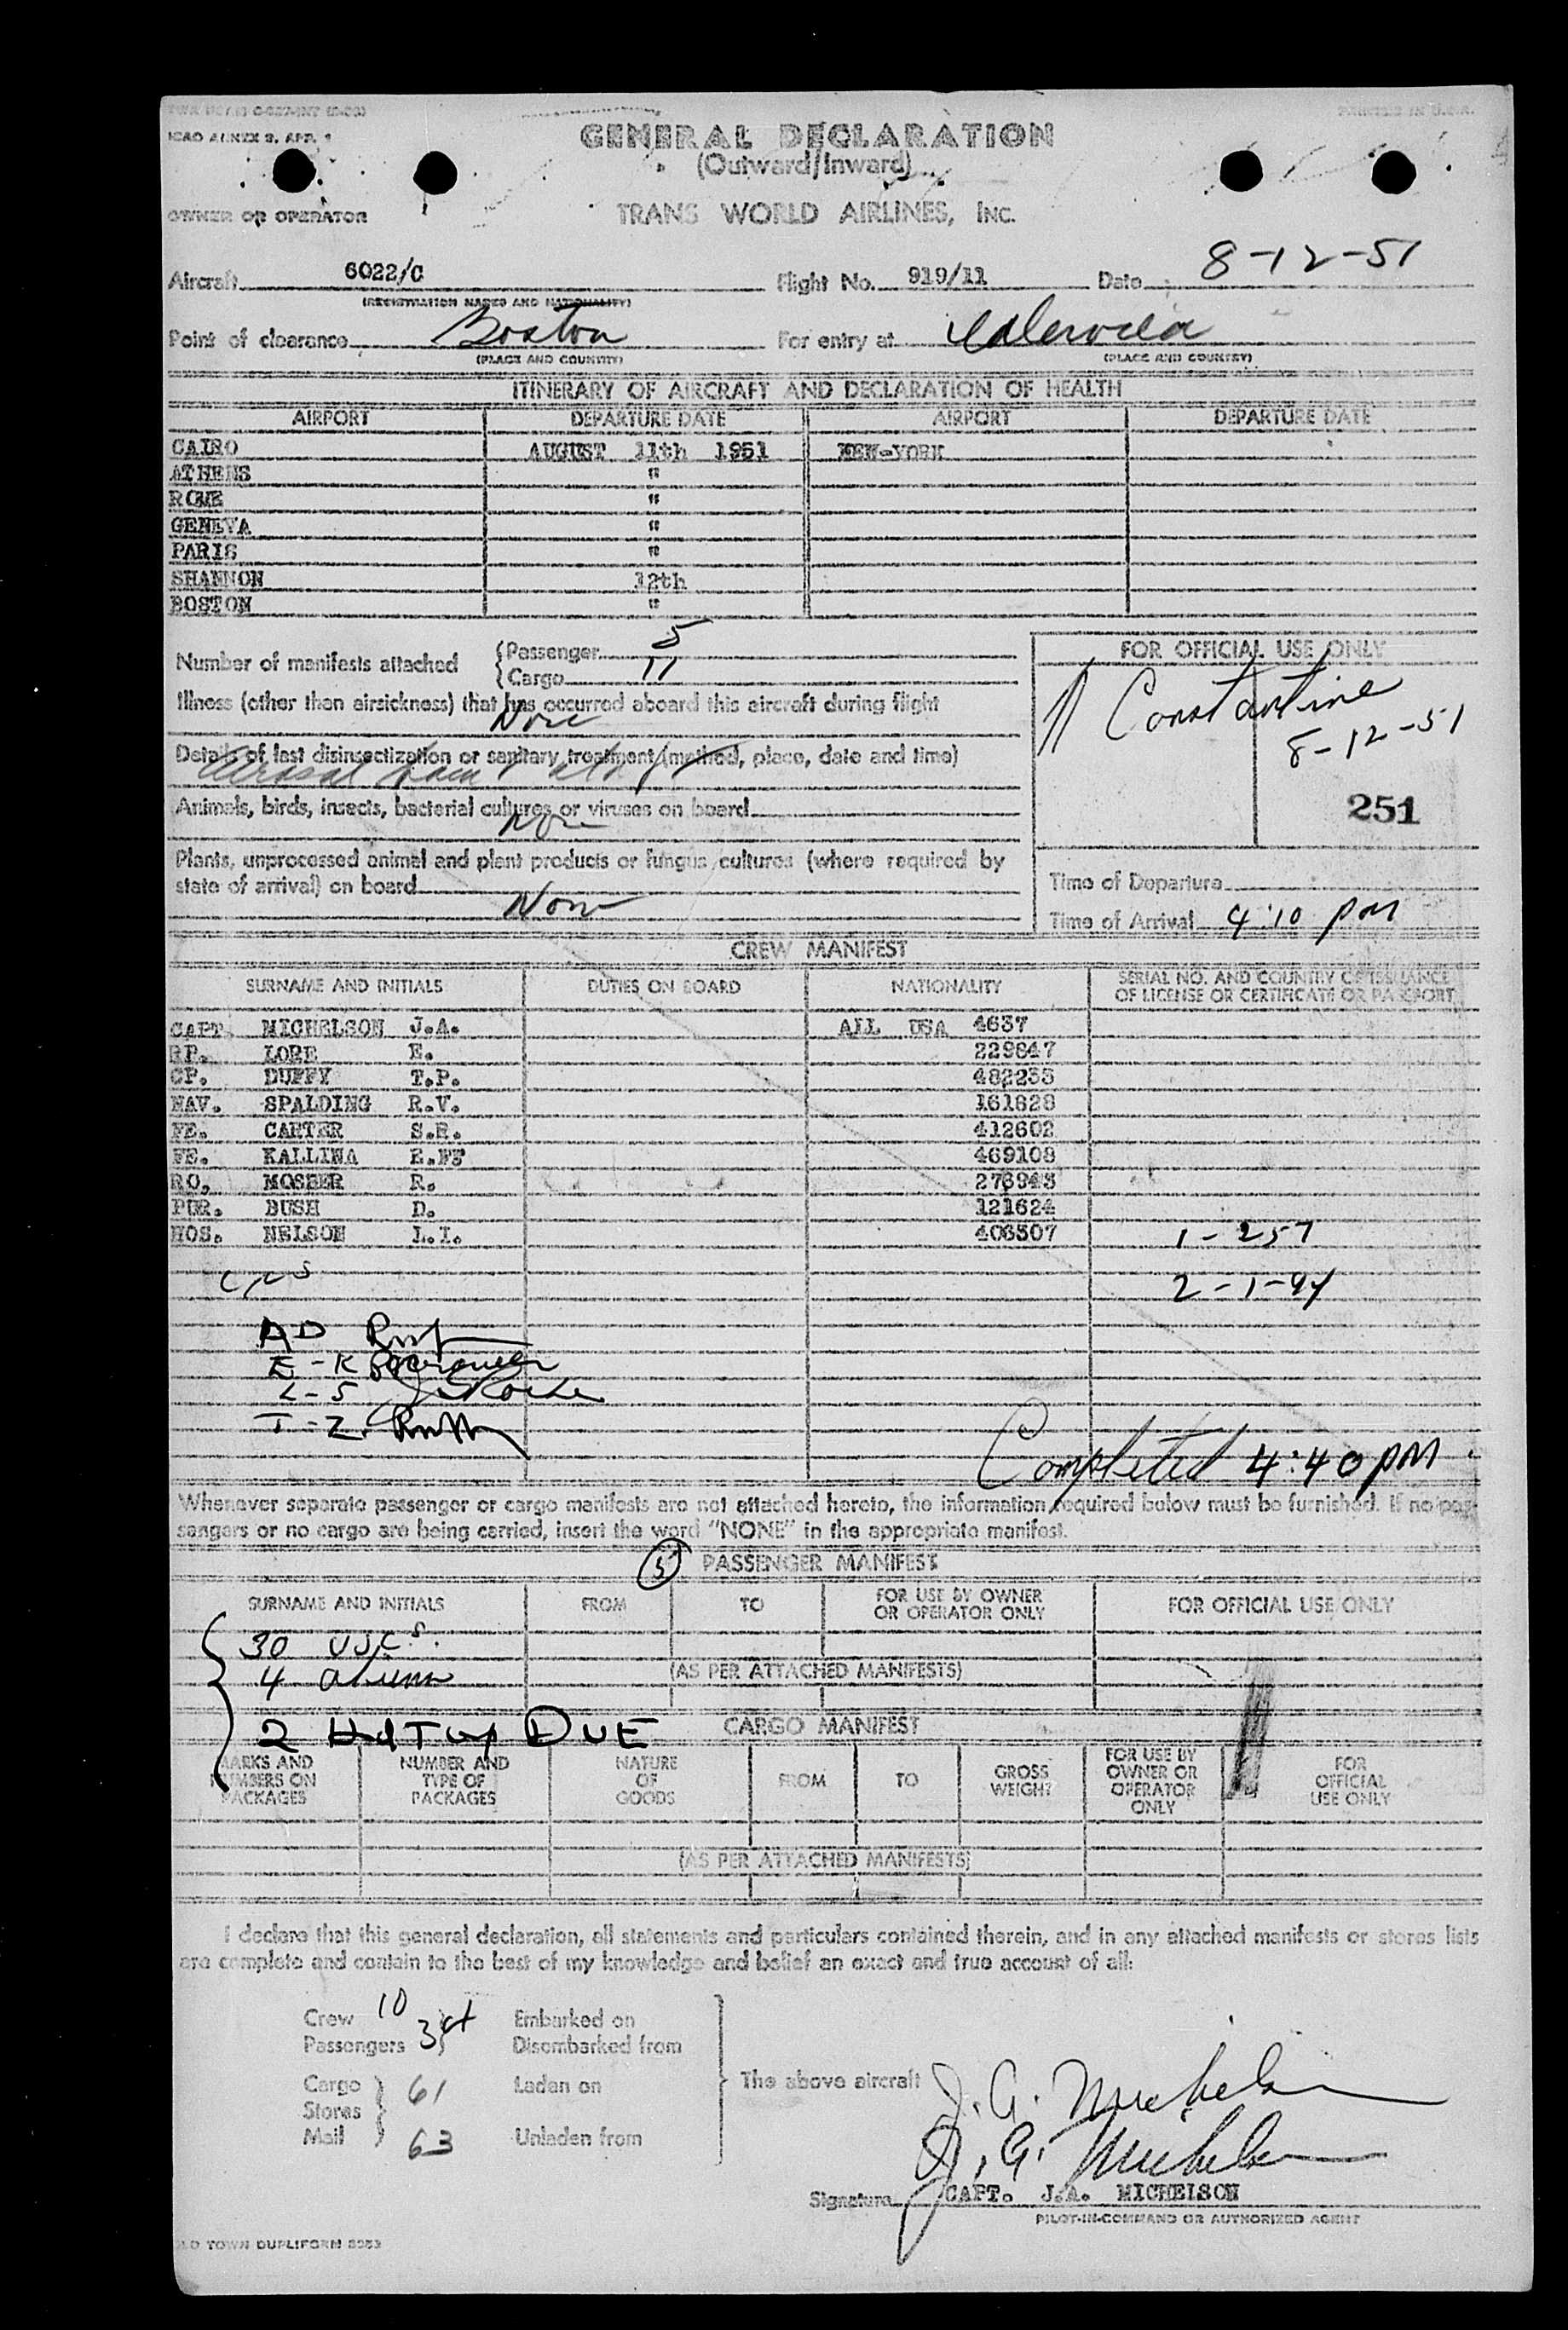 ICAO ANNEX 9, APP. 1
PRINTED IN U.S.A.
GENERAL DECLARATION
(Outward/Inward)
OWNER OR OPERATOR TRANS WORLD AIRLINES, INC.
Aircraft 6022/C Flight No. 919/11 Date 8-12-51
(REGISTRATION MARKS AND NATIONALITY)
Point of clearance Boston For entry at
(PLACE AND COUNTRY) (PLACE AND COUNTRY)
ITINERARY OF AIRCRAFT AND DECLARATION OF HEALTH
AIRPORT DEPARTURE DATE AIRPORT DEPARTURE DATE
CAIRO AUGUST 11th 1951 NEW-YORK
ATHENS "
ROME "
GENEVA "
PARIS "
SHANNON 12th
BOSTON "
Number of manifests attached Passenger 5
Cargo 11
Illness (other than airsickness) that has occurred aboard this aircraft during flight
None
Details of last disinsectization or sanitary treatment (method, place, date and time)
Aerosol
Animals, birds, insects, bacterial cultures or viruses on board
None
Plants, unprocessed animal and plant products or fungus cultures (where required by
state of arrival) on board
None
FOR OFFICIAL USE ONLY
Constantine
8-12-51
251
Time of Departure
Time of Arrival 4:10 PM
CREW MANIFEST
SURNAME AND INITIALS DUTIES ON BOARD NATIONALITY SERIAL NO. AND COUNTRY OF ISSUANCE OF LICENSE OR CERTIFICATE OR PASSPORT
CAPT. MICHELSON J.A. ALL USA 4637
RP. LORE E. 229847
CP. DUFFY T.P. 482233
NAV. SPALDING R.V. 161828
FE. CARTER S.R. 412602
FE. KALLINA E.FF 469108
RO, MOSHER R. 276943
PUR. BUSH D. 121624
HOS. NELSON L.I. 406507
1-257
2-1-94
AD
E-K
L-S
T-Z
Completed 4:40 PM
Whenever separate passenger or cargo manifests are not attached hereto, the information required below must be furnished. If no pas-
sengers or no cargo are being carried, insert the word "NONE" in the appropriate manifest.
5 PASSENGER MANIFEST
SURNAME AND INITIALS FROM TO FOR USE BY OWNER OR OPERATOR ONLY FOR OFFICIAL USE ONLY
30 USCs.
4 aliens
(AS PER ATTACHED MANIFESTS)
2 Hd Tax DUE
CARGO MANIFEST
MARKS AND NUMBERS ON PACKAGES NUMBER AND TYPE OF PACKAGES NATURE OF GOODS FROM TO GROSS WEIGHT FOR USE BY OWNER OR OPERATOR ONLY FOR OFFICIAL USE ONLY
(AS PER ATTACHED MANIFESTS)
I declare that this general declaration, all statements and particulars contained therein, and in any attached manifests or stores lists
are complete and contain to the best of my knowledge and belief an exact and true account of all:
Crew 10 Embarked on
Passengers 34 Disembarked from
Cargo 61 Laden on
Stores
Mail 63 Unladen from
The above aircraft
J. A. Michelson
J. A. Michelson
Signature CAPT. J.A. MICHELSON
PILOT-IN-COMMAND OR AUTHORIZED AGENT
OLD TOWN DUPLIFORM